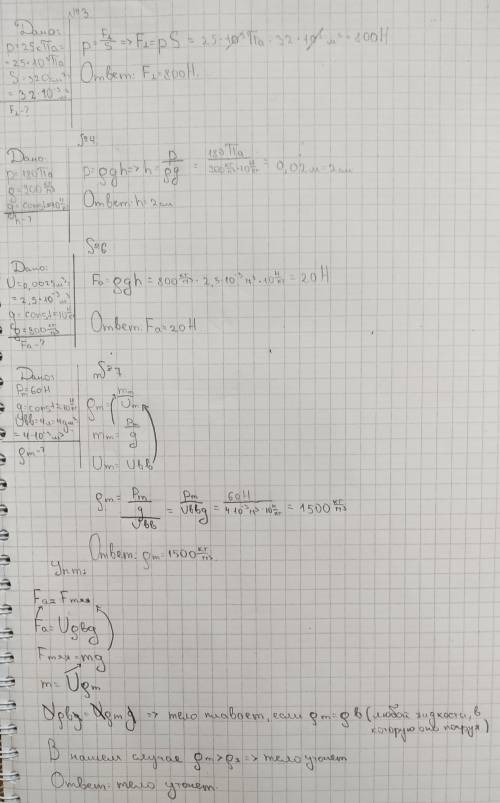 №3
Дано:
p=25кПа=
=25·10³Па
S=320см²=
=32·10⁻³м²
F⊥-?
p=F⊥/S=>F⊥=pS=25·10³Па·32·10⁻³м²=800Н
Ответ: F⊥=800Н.
№4
Дано:
p=180Па
ρ=900кг/м³
g=const=10Н/кг
h-?
p=ρgh=>h=p/ρg=180Па/900кг/м³·10Н/кг=0,02м=2см
Ответ: h=2см
№6
Дано:
U=0,0025м³=
=2,5·10⁻³м³
g=const=10Н/кг
ρ=800кг/м³
Fa-?
Fa=ρgh=800кг/м³·2,5·10⁻³м³·10Н/кг=20Н
Ответ: Fa=20Н
№7
Дано:
Pт=60Н
g=const=10Н/кг
Uвв=4л=4дм³
=4·10⁻³м³
ρт-?
ρт=mт/Uт
mт=Pт/g
Uт=Uвв
ρт=Pт/g/Uвв=Pт/Uввg=60Н/4·10⁻³м³·10Н/кг=1500кг/м³
Ответ: ρт=1500кг/м³
Fa=Fтяж
Fa=Uρвg
Fтяж=mg
m=Uρт
Uρвg=Uρтg=>тело плавает, если ρт=ρв(любой жидкости, в
которую оно погруж)
В нашем случае ρт>ρж=>тело утонет
Ответ: тело утонет.